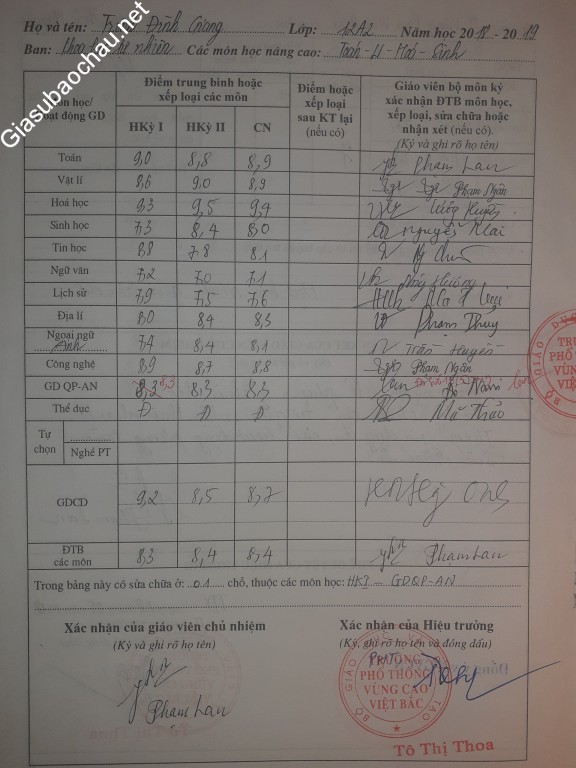 Họ và tên: Trần Đình Giang Lớp: 12A2 Năm học 2018 - 2019
Ban: Khoa học tự nhiên Các môn học nâng cao: Toán - Lí - Hoá - Sinh
Giasubaochau.net
Môn học/ Hoạt động GD
Điểm trung bình hoặc xếp loại các môn
HKỳ I HKỳ II CN
Điểm hoặc xếp loại sau KT lại (nếu có)
Giáo viên bộ môn ký xác nhận ĐTB môn học, xếp loại, sửa chữa hoặc nhận xét (nếu có).
(Ký và ghi rõ họ tên)
Toán 9,0 8,8 8,9 Phạm Lan
Vật lí 8,6 9,0 8,9 Phạm Ngân
Hoá học 9,3 9,5 9,4
Sinh học 7,3 8,4 8,0 Nguyễn Mai
Tin học 8,8 7,8 8,1
Ngữ văn 7,2 7,0 7,1
Lịch sử 7,9 7,5 7,6
Địa lí 8,0 8,4 8,3 Phạm Thủy
Ngoại ngữ Anh 7,4 8,4 8,1 Trần Huyền
Công nghệ 8,9 8,7 8,8 Phạm Ngân
GD QP-AN 8,2 8,3 8,3 8,3
Thể dục Đ Đ Đ Mã Thảo
Tự chọn
Nghề PT
GDCD 9,2 8,5 8,7
ĐTB các môn 8,3 8,4 8,4 Phạm Lan
Trong bảng này có sửa chữa ở: 01 chỗ, thuộc các môn học: HKI - GDQP-AN
Xác nhận của giáo viên chủ nhiệm
(Ký và ghi rõ họ tên)
Phạm Lan
Xác nhận của Hiệu trưởng
(Ký, ghi rõ họ tên và đóng dấu)
TRƯỜNG
PHỔ THÔNG
VÙNG CAO
VIỆT BẮC
BỘ GIÁO DỤC VÀ ĐÀO TẠO
Tô Thị Thoa